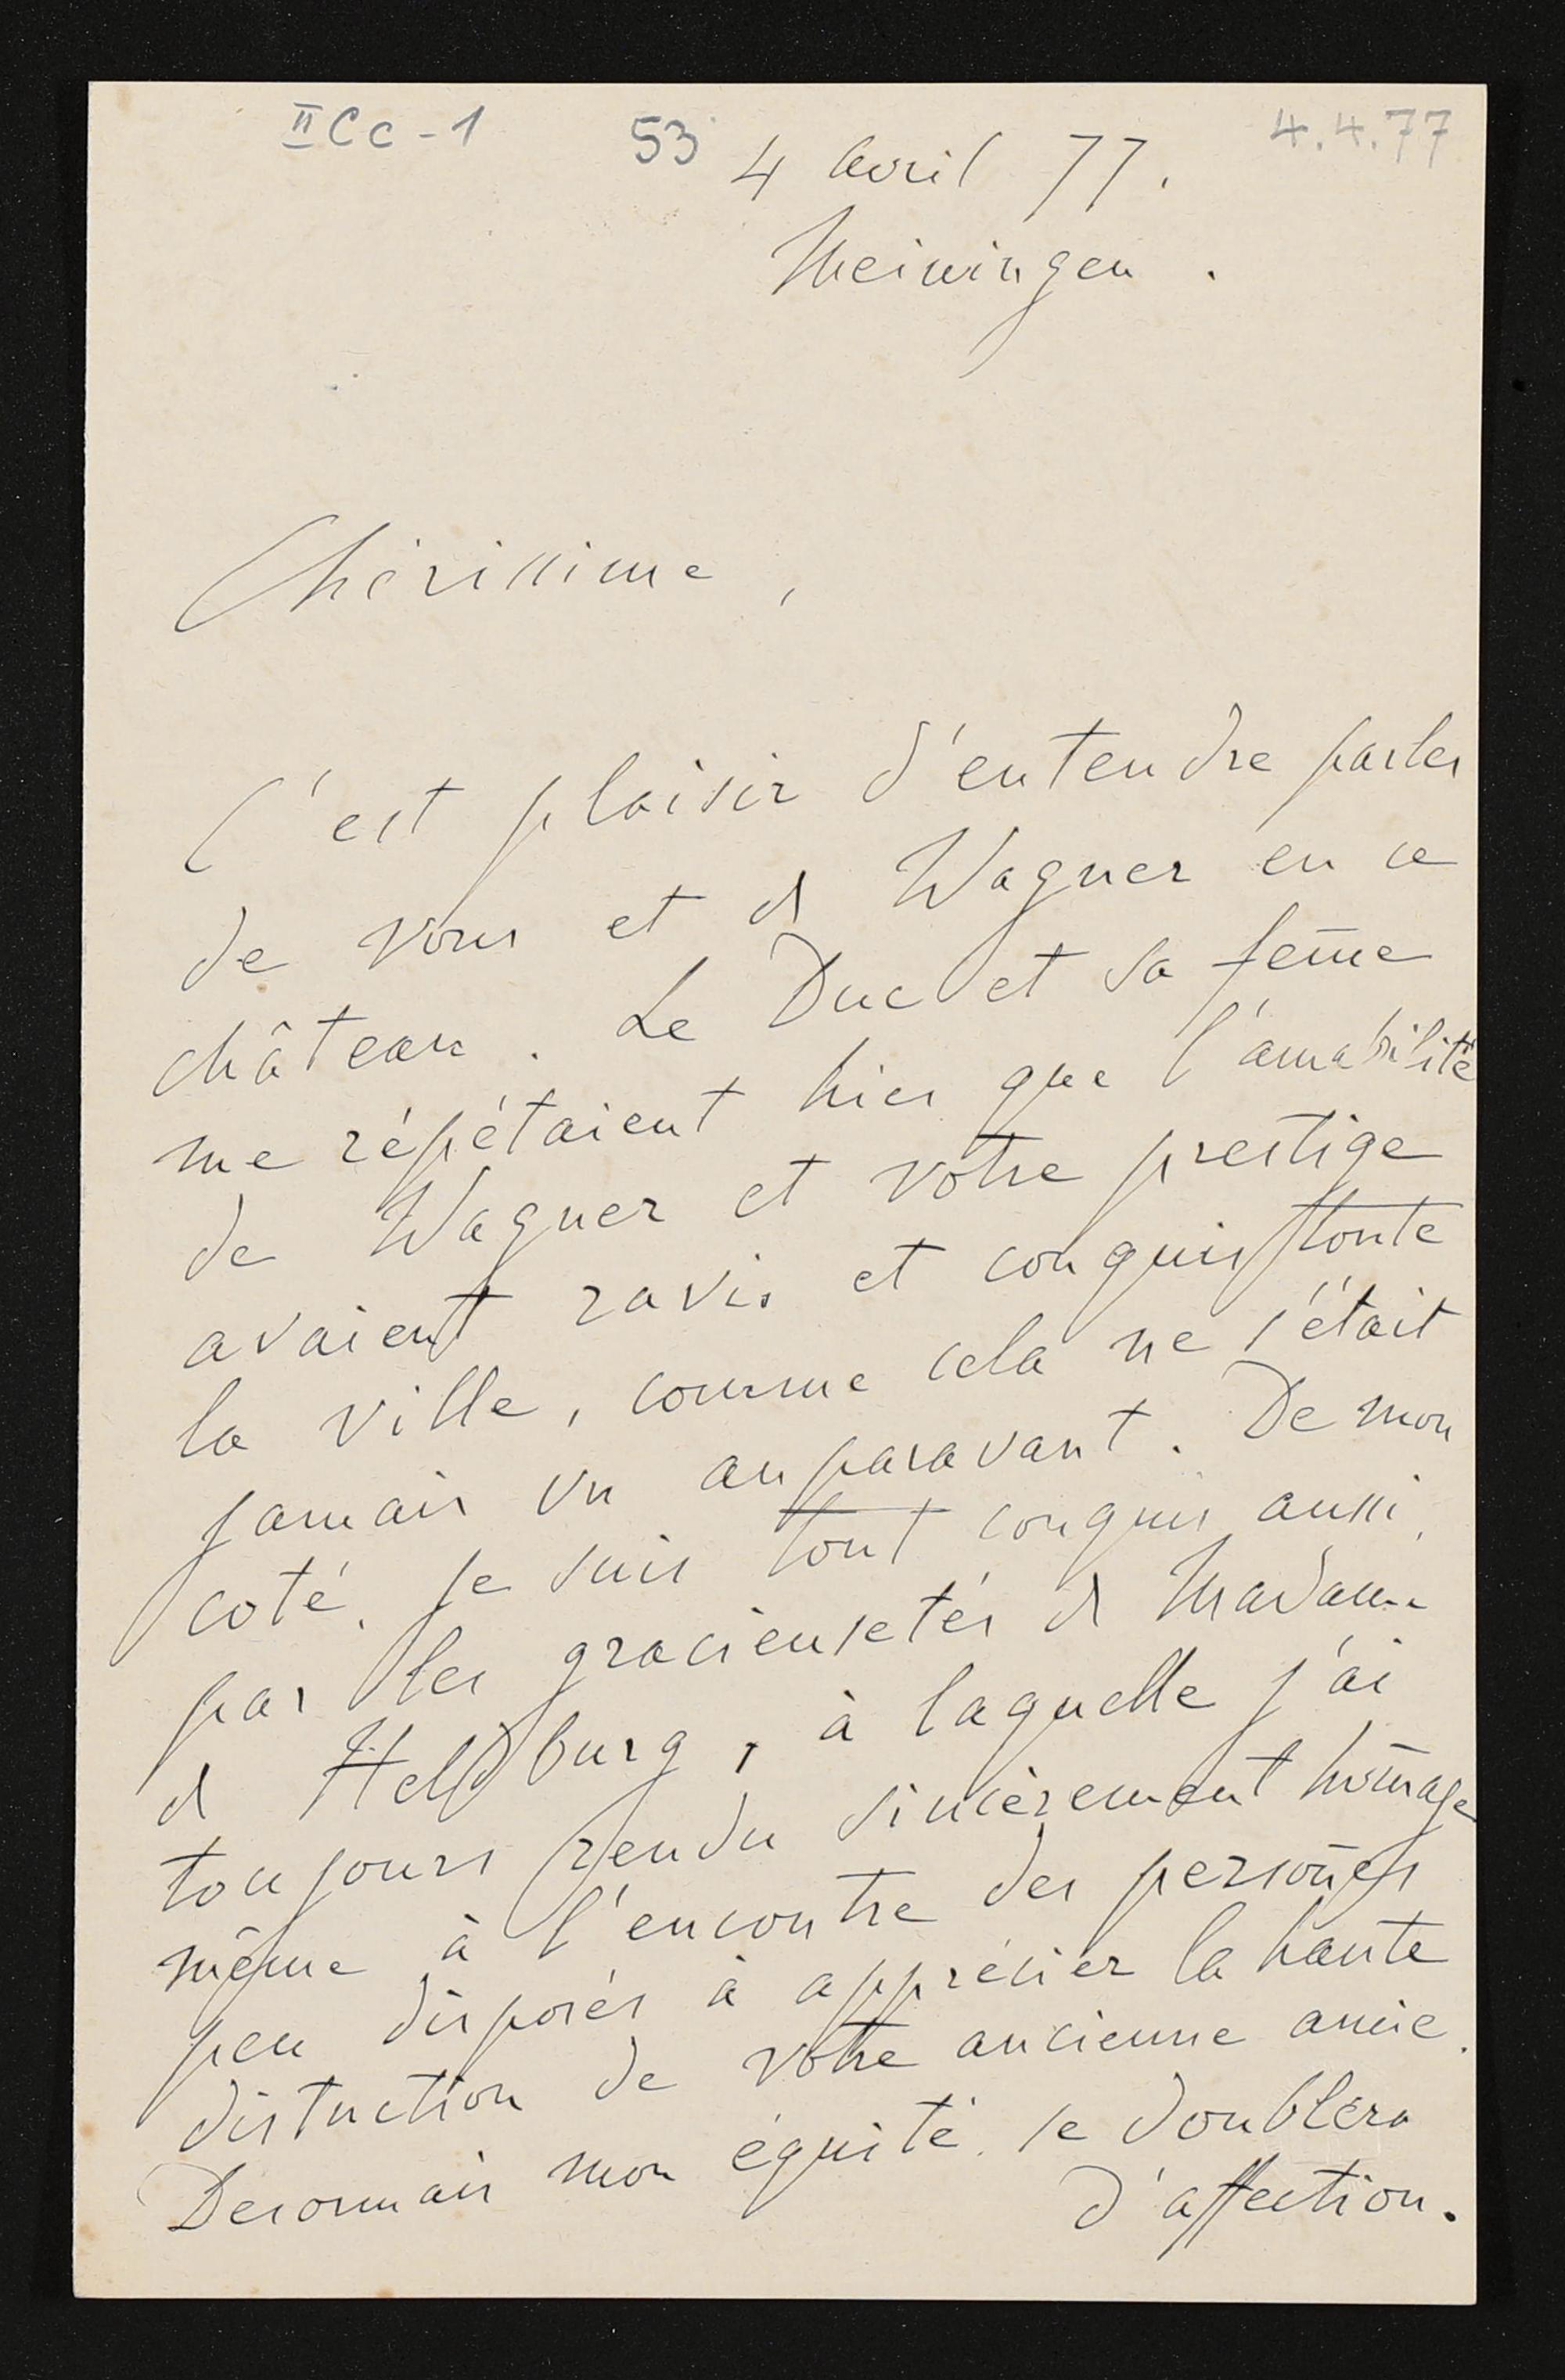 II Cc - 1 53 4.4.77
4 Avril 77.
Meiningen.
Chérissime,
C'est plaisir d'entendre parler
de vous et de Wagner en ce
château. Le Duc et sa fem̄e
me répétaient hier que l'amabilité
de Wagner et votre prestige
avaient ravis et conquis toute
la ville, comme cela ne s'était
jamais vu auparavant. De mon
coté, je suis tout conquis aussi,
par les gracieusetés de Madame
de Heldburg, à laquelle j'ai
toujours rendu sincèrement hom̄age
même à l'encontre des person̄es
peu disposés à apprécier la haute
distinction de votre ancienne amie.
Desormais mon équité se doublera
d'affection.